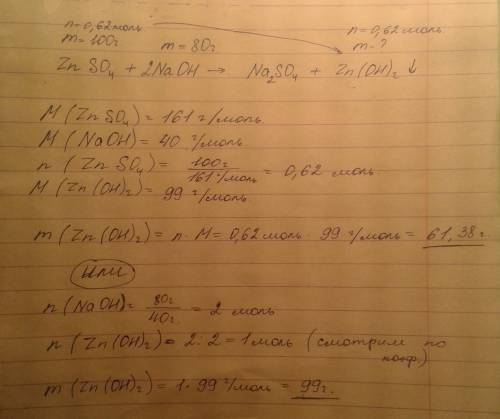 n=0,62моль n=0,62моль
m=100г m=80г m-?
ZnSO₄ + 2NaOH → Na₂SO₄ + Zn(OH)₂ ↓
M(ZnSO₄) = 161 г/моль
M(NaOH) = 40 г/моль
n(ZnSO₄) = 100г / 161 г/моль = 0,62 моль
M(Zn(OH)₂) = 99 г/моль
m(Zn(OH)₂) = n·M = 0,62моль · 99 г/моль = 61,38г
или
n(NaOH) = 80г / 40г = 2 моль
n(Zn(OH)₂) = 2·2 = 1моль (смотрим по
коэф.)
m(Zn(OH)₂) = 1·99 г/моль = 99г.